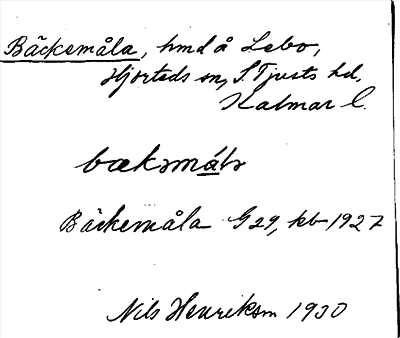 Bäckemåla, hmd å Lebo,
Hjorteds sn, S Tjusts hd,
Kalmar l.
Bäckemåla G 29, kb 1927
Nils Henriksson 1930